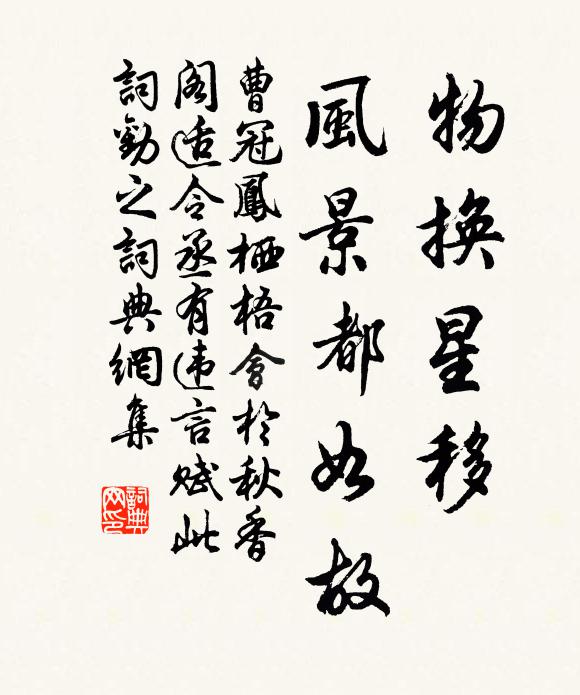 物換星移
風景都如故
曹冠鳳栖梧會於秋香
阁适令丞有违言赋此
詞勸之詞典網集
詞典
网印